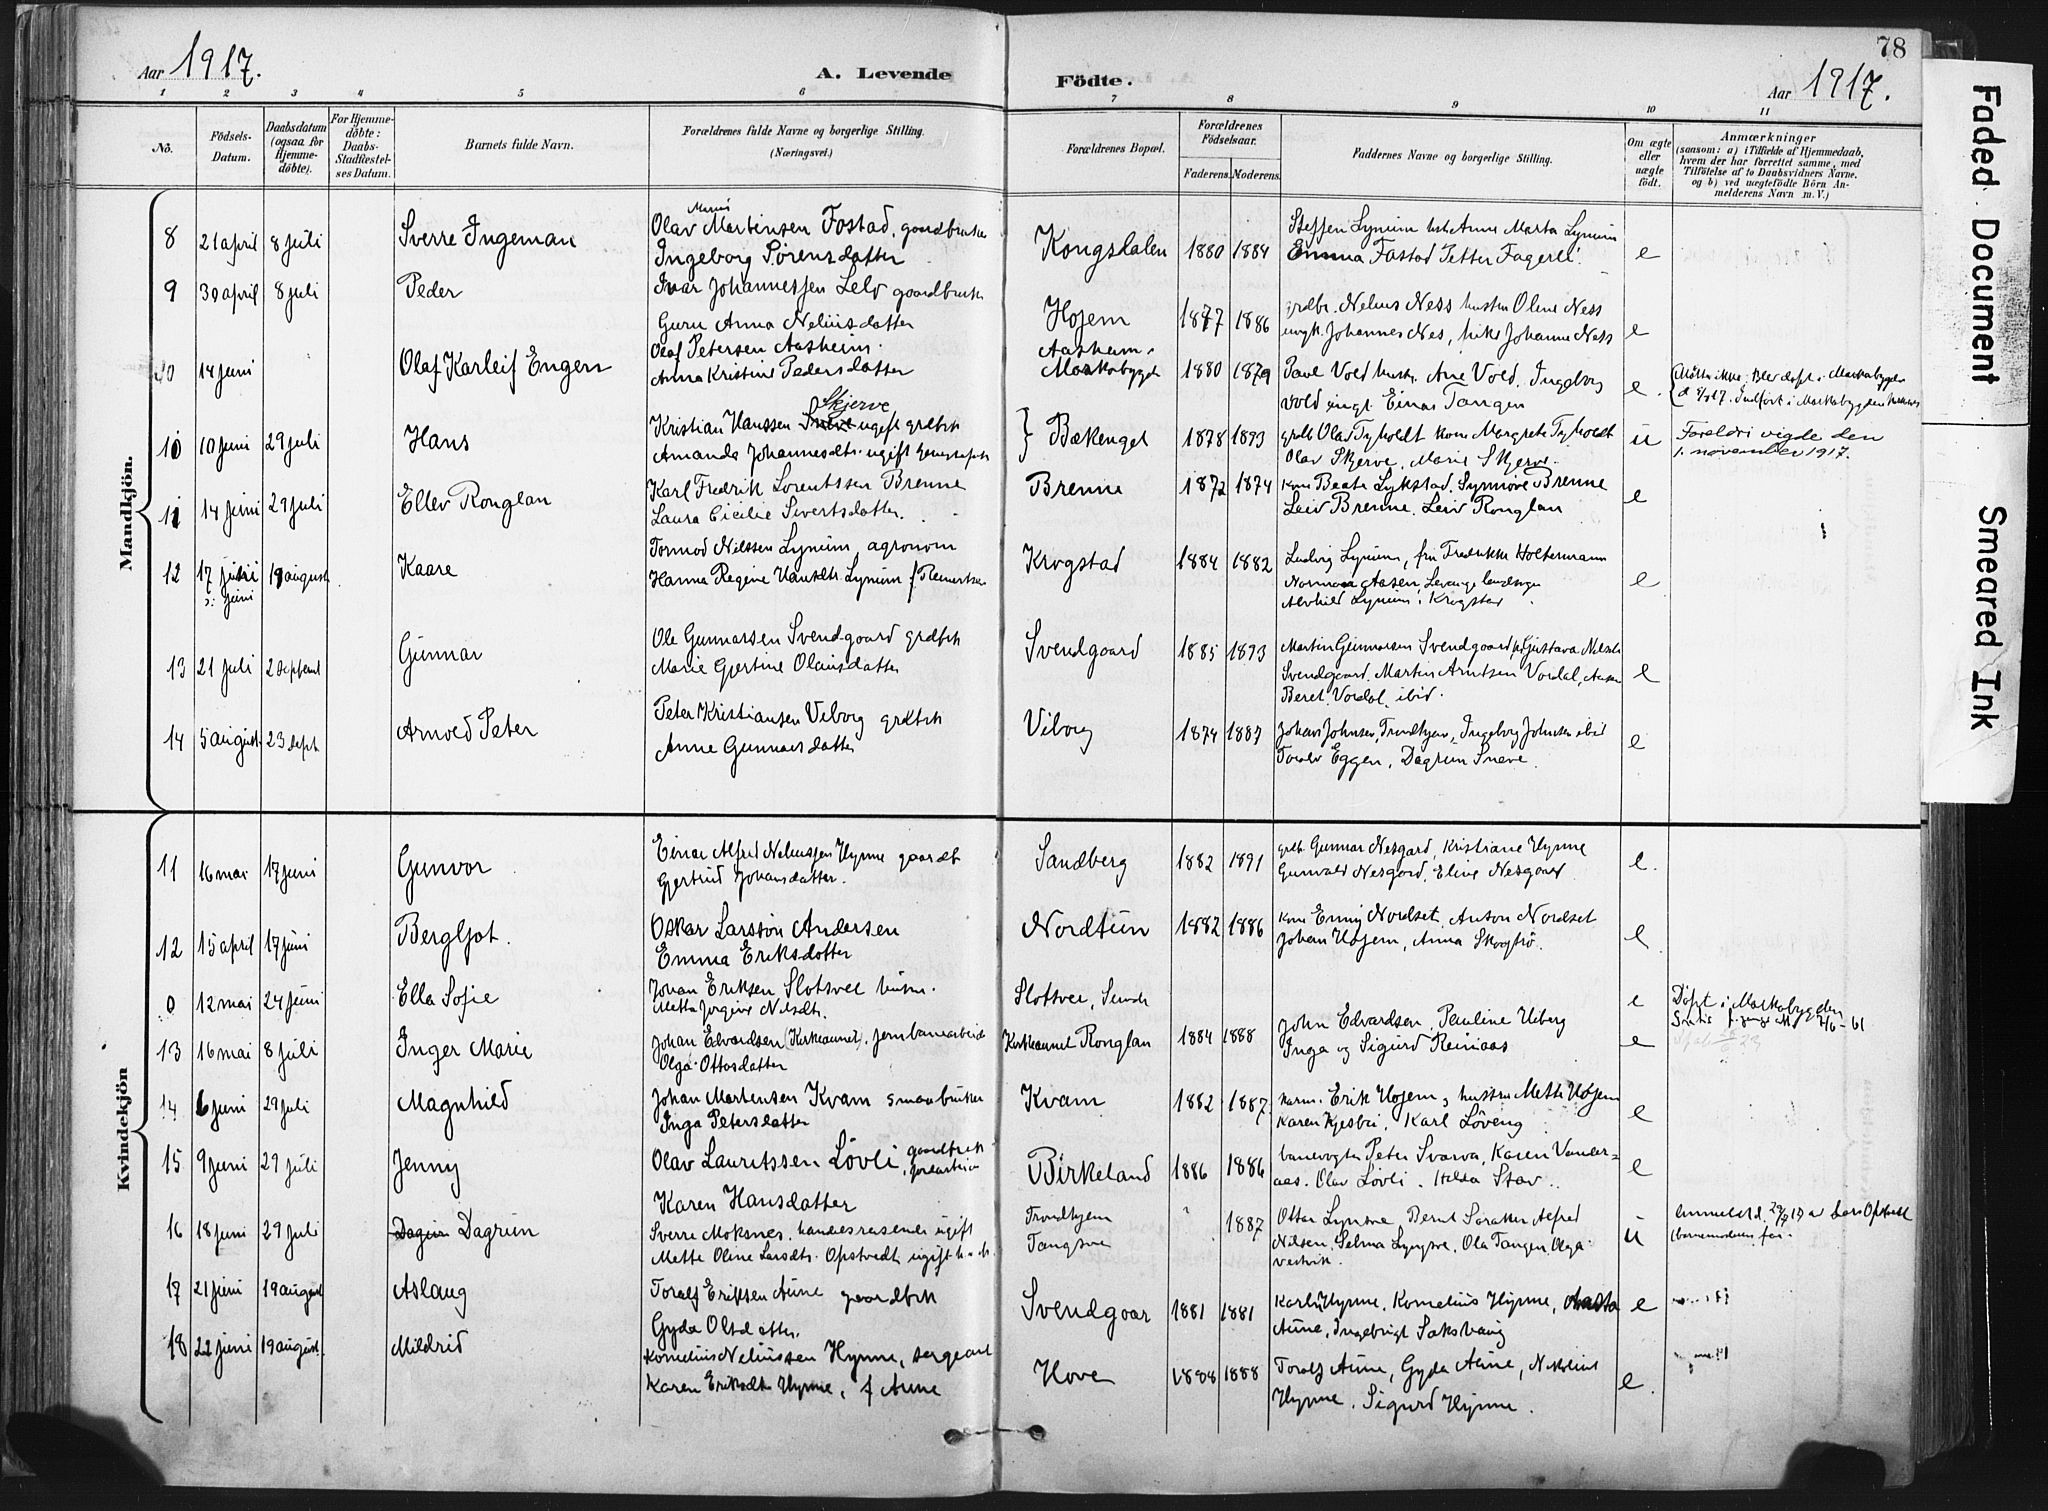 78
Aar 1917.
A. Levende
Födte.
Aar 1917.
Faded Document Smeared Ink
1 2 3 4 5 6 7 8 9 10 11
No.
Födsels-Datum.
Daabsdatum (ogsaa for Hjemme-döbte).
For Hjemme-döbte: Daabs-Stadfæstel-ses Datum.
Barnets fulde Navn.
Forældrenes fulde Navne og borgerlige Stilling. (Næringsvei.)
Forældrenes Bopæl.
Forældrenes Födselsaar.
Faderens. Moderens.
Faddernes Navne og borgerlige Stilling.
Om ægte eller uægte födt.
Anmærkninger
(saasom: a) i Tilfælde af Hjemmedaab, hvem der har forrettet samme, med Tilföielse af to Daabsvidners Navne. og b) ved uægtefödte Börn An-melderens Navn m. V.)
Mandkjön.
8 21 april 8 juli Sverre Ingeman
Olav Marius Martinsen Fostad, gaardbruker
Ingeborg Sörensdatter
Kongsdalen 1880 1884
Steffen Lynum Anne Marta Lynum
Emma Fostad Petter Fagerli. e
9 30 april 8 juli Peder
Ivar Johannessen Lelv gaardbruker
Guru Anna Neliusdatter
Hojem 1877 1886
grdbr. Nelius Ness hustru Oline Ness
ungk. Johannes Nes, pike Johanne Ness e
10 14 juni Olaf Karleif Engen
Olaf Petersen Aasheim.
Anna Kristine Pedersdatter
Aasheim. Markabygd 1880 1879
Paul Vold hustr. Ane Vold, Ingeborg
Vold ungt. Einar Tangen e.
Blev döpt i Markabygden
10 10 juni 29 juli Hans
Kristian Hanssen Skjerve ugift grdbrk
Amanda Johannesdtr. ugift
Bækenget 1878 1893
grdb Olav Tyholdt kone Margrete Tyholdt
Olav Skjerve, Marie Skjerve. u
Foreldri vigde den
1. november 1917.
11 14 juni 29 juli Ellev Ronglan
Karl Fredrik Lorentssen Brenne
Laura Cicilie Sivertsdatter.
Brenne 1872 1874
kone Beate Lykstad, Synnöve Brenne
Leiv Brenne. Leiv Ronglan e
12 17 juli ɔ: juni 19 august Kaare
Tormod Nilssen Lynum, agronom
Hanna Regine Hansdtr. Lynum f. Reinertsen
Krogstad 1884 1882
Ludvig Lynum, fru Fredrikke Holtermann
Aasen, Levanger landsogn
Alvhild Lynum, Krogstad. e
13 21 juli 2 septemb Gunnar
Ole Gunnarsen Svendgaard grdbrk
Marie Gjertine Olausdatter
Svendgaard 1885 1893
Martin Gunnarsen Svendgaard, Gustava Nilsdtr
Svendgaard. Martin Arntsen Vordal, Aasen
Beret Vordal, ibid. e
14 5 august 23 sept Arnold Peter
Peter Kristiansen Viborg grdbrk
Anne Gunnarsdatter
Viborg 1874 1887
Johan Johnsen, Trondhjem, Ingeborg Johnsen ibid
Toralv Eggen, Dagrun Sneve. e
Kvindekjön
11 16 mai 17 juni Gunvor
Einar Alfred Neliussen Hynne gaardb
Gjertrud Johansdatter.
Sandberg 1882 1891
grdb. Gunnar Nesgard, Kristiane Hynne
Gunvald Nesgard, Eline Nesgaard e.
12 15 april 17 juni Bergljot.
Oskar Larsson Andersen
Emma Eriksdotter
Nordtun 1882 1886
kone Emmy Nordset, Anton Nordset
Johan Hojem, Anna Skogtrö. e
0 12 mai 24 juni Ella Sofie
Johan Eriksen Slotsvee husm.
Metta Jörgine Nilsdtr.
Slotsvee, e
Döpt i Markabygden
13 16 mai 8 juli Inger Marie
Johan Edvardsen (Kirkeaunet), jernbanearbeider
Olga Ottosdatter
Kirkeaunet Ronglan 1884 1888
John Edvardsen, Pauline Viberg
Inga og Sigurd Reinaas e
14 6 juni 29 juli Magnhild
Johan Martinsen Kvam smaabruker
Inga Petersdatter
Kvam 1882 1887
Erik Hojem, hustru Mette Hojem
Karen Kjesbu, Karl Löveng e
15 9 juni 29 juli Jenny
Olav Lauritssen Lövli gaardbruk
Karen Hansdatter
Birkeland 1886 1886
banevogter Peter Svarva, Karen Vander-
aas. Olav Lövli. Hilda Stav. e
16 18 juni 29 juli Dagrun
Sverre Moksnes, handelsreisende ugift
Mette Oline Larsdtr. Opstvedt ugift
Trondhjem
Tangsve 1887
Ottar Lynsve, Bernt Alfred
Nilsen, Selma Lyngsve, Ola Tangen, Olga
Vestvik. u
Anmeldt d. 29/7 17 av Lars Opstvedt
(barnemoderens far.
17 21 juni 19 august Aslaug
Toralf Eriksen Aune gaardbrk
Gyda Olsdatter.
Svendgaar 1881 1881
Karl Hynne, Kornelius Hynne, Aasta
Aune, Ingebrigt Saksvaag e
18 22 juni 19 august. Mildrid
Kornelius Neliussen Hynne, sergeant
Karen Eriksdtr Hynne, f Aune
Hove 1888 1888
Toralf Aune, Gyda Aune, Nikoline
Hynne. Sigurd Hynne. e.